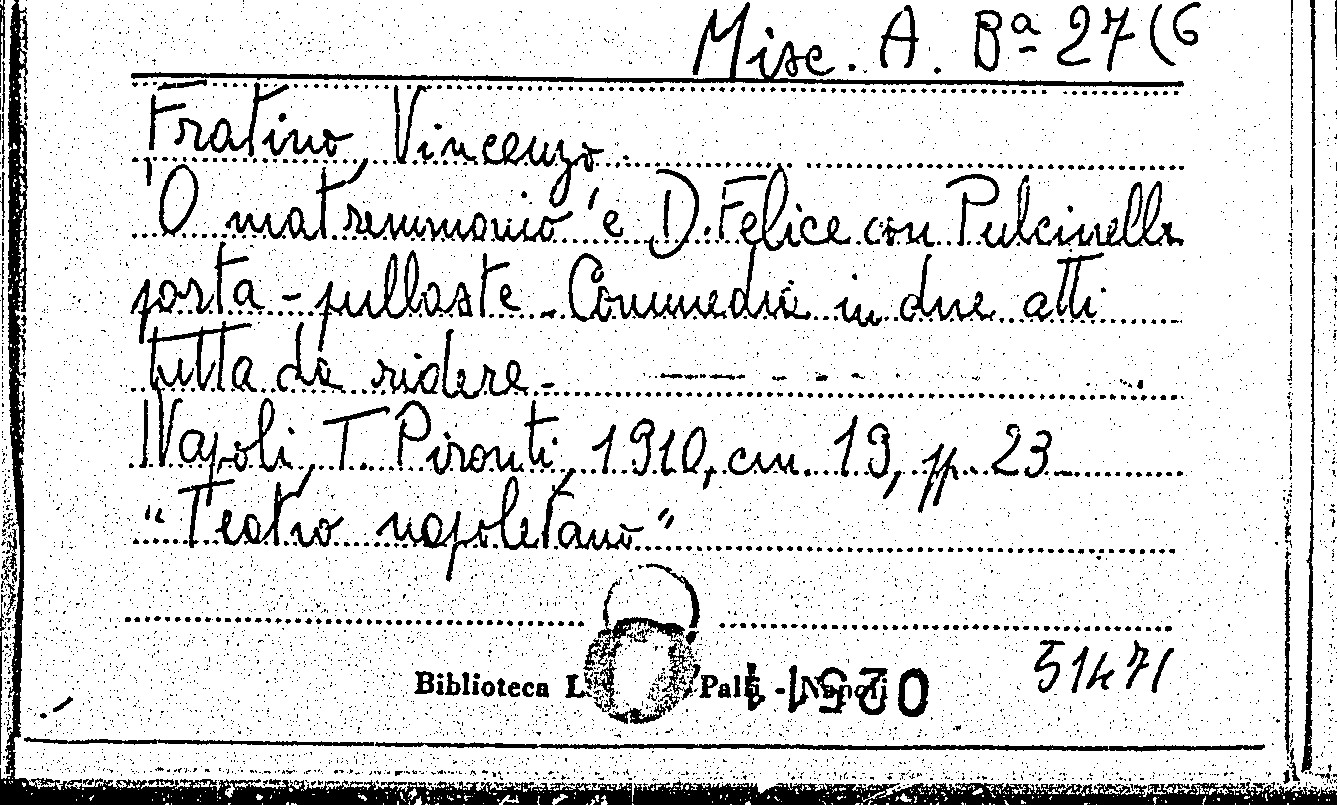 Misc. A. Bª 27(6
Fratino, Vincenzo.
'O matremmonio 'e D. Felice con Pulcinella
porta-pullaste. Commedia in due atti
tutta da ridere.-
Napoli, T. Pironti, 1910, cm. 19, pp. 23
"Teatro napoletano"
Biblioteca L. Palli - Napoli
51471